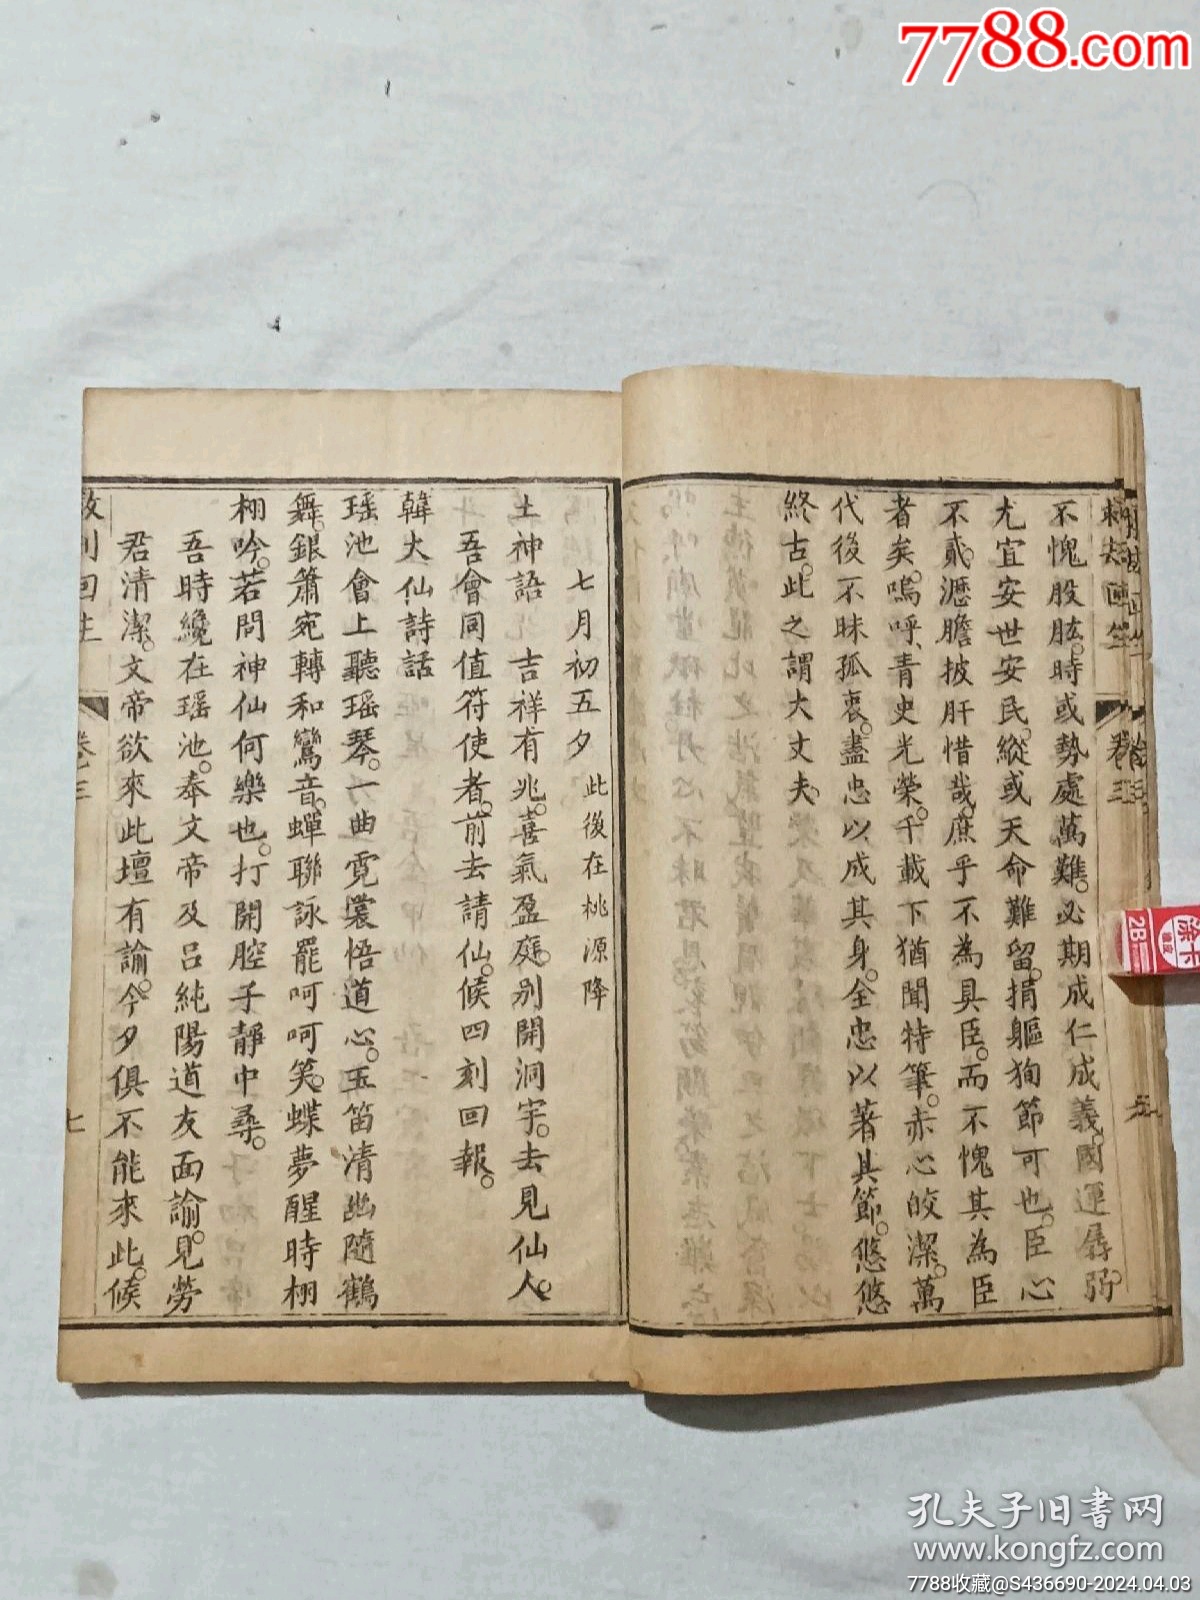 7788.com
不愧股肱。時或勢處萬難。必期成仁成義。國運孱弱。
尤宜安世安民。縱或天命難留。捐軀狥節可也。臣心
不貳。瀝膽披肝惜哉。庶乎不為具臣。而不愧其為臣
者矣。嗚呼、青史光榮。千載下猶聞特筆。赤心皎潔。萬
代後不昧孤衷。盡忠以成其身。全忠以著其節。悠悠
終古。此之謂大丈夫、
卷三
七月初五夕 此後在桃源降
土神語 吉祥有兆。喜氣盈庭。别開洞宇。去見仙人。
吾會同值符使者。前去請仙。候四刻回報。
韓大仙詩話
瑶池會上聽瑶琴。一曲霓裳悟道心。玉笛清幽隨鶴
舞。銀簫宛轉和鸞音。蟬聯詠罷呵呵笑。蝶夢醒時栩
栩吟。若問神仙何樂也。打開腔子靜中尋。
吾時纔在瑶池。奉文帝及吕純陽道友面諭。見勞
君清潔。文帝欲來此壇有諭。今夕俱不能來此。候
卷三
七
2B
孔夫子旧书网
www.kongfz.com
7788收藏@S436690-2024.04.03